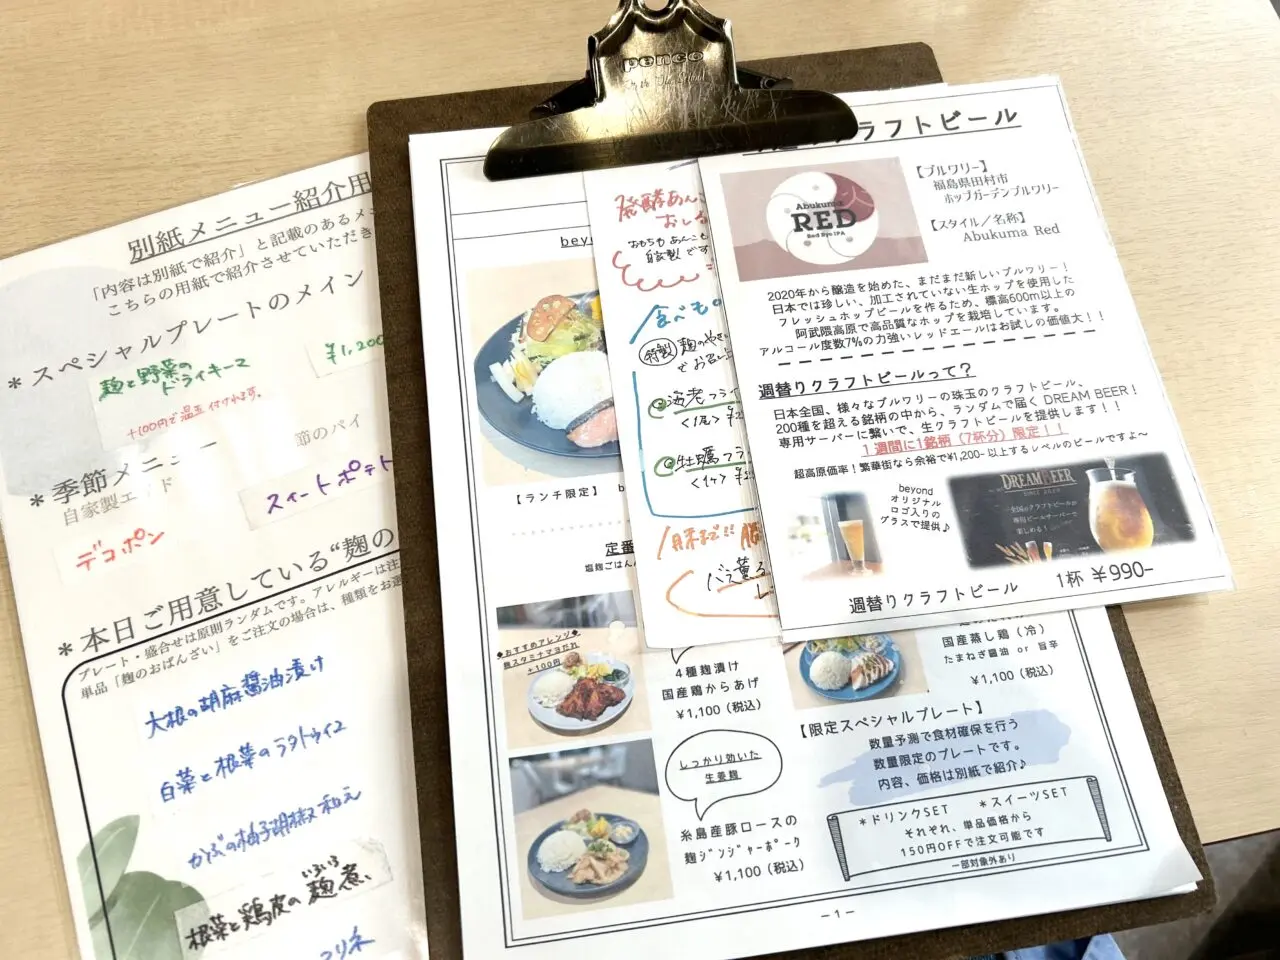 penco
別紙メニュー紹介用
「内容は別紙で紹介」と記載のあるメニ
こちらの用紙で紹介させていただき
*スペシャルプレートのメイン
麹と野菜の
ドライキーマ
¥1,200
+100円で温玉付けれます。
*季節メニュー
節のパイ
自家製エード
デコポン
スイートポテト
*本日ご用意している“麹の
プレート・盛合せは原則ランダムです。アレルギーは注
単品「麹のおばんざい」をご注文の場合は、種類をお選
大根の胡麻醤油漬け
白菜と根菜のラタトゥイユ
かぶの柚子胡椒和え
根菜と鶏皮の麹煮
マリネ
beyo
【ランチ限定】 b
定番
塩麹ごはん
◆おすすめのアレンジ◆
麹スタミナマヨだれ
+100円
4種麹漬け
国産鶏からあげ
¥1,100（税込）
しっかり効いた
生姜麹
糸島産豚ロースの
麹ジンジャーポーク
¥1,100（税込）
発酵あん
おしる
おもちもあんこも
自家製です
食べも
特製 麹のやさ
でお召し上
◎海老フライ
<1尾>
◎牡蠣フラ
<1ケ>
月末まで!!
バラ薫る
国産蒸し鶏（冷）
たまねぎ醤油 or 旨辛
¥1,100（税込）
【限定スペシャルプレート】
数量予測で食材確保を行う
数量限定のプレートです。
内容、価格は別紙で紹介♪
*ドリンクSET *スイーツSET
それぞれ、単品価格から
150円OFFで注文可能です
一部対象外あり
－1－
クラフトビール
Abukuma
RED
Red Rye IPA
【ブルワリー】
福島県田村市
ホップガーデンブルワリー
【スタイル／名称】
Abukuma Red
2020年から醸造を始めた、まだまだ新しいブルワリー！
日本では珍しい、加工されていない生ホップを使用した
フレッシュホップビールを作るため、標高600m以上の
阿武隈高原で高品質なホップを栽培しています。
アルコール度数7%の力強いレッドエールはお試しの価値大！！
週替りクラフトビールって？
日本全国、様々なブルワリーの珠玉のクラフトビール、
200種を超える銘柄の中から、ランダムで届く DREAM BEER！
専用サーバーに繋いで、生クラフトビールを提供します！！
1週間に1銘柄（7杯分）限定！！
超高原価率！繁華街なら余裕で¥1,200-以上するレベルのビールですよ～
beyond
オリジナル
ロゴ入りの
グラスで提供♪
DREAMBEER
全国のクラフトビールが
専用ビールサーバーで
楽しめる！
週替りクラフトビール 1杯 ¥990-